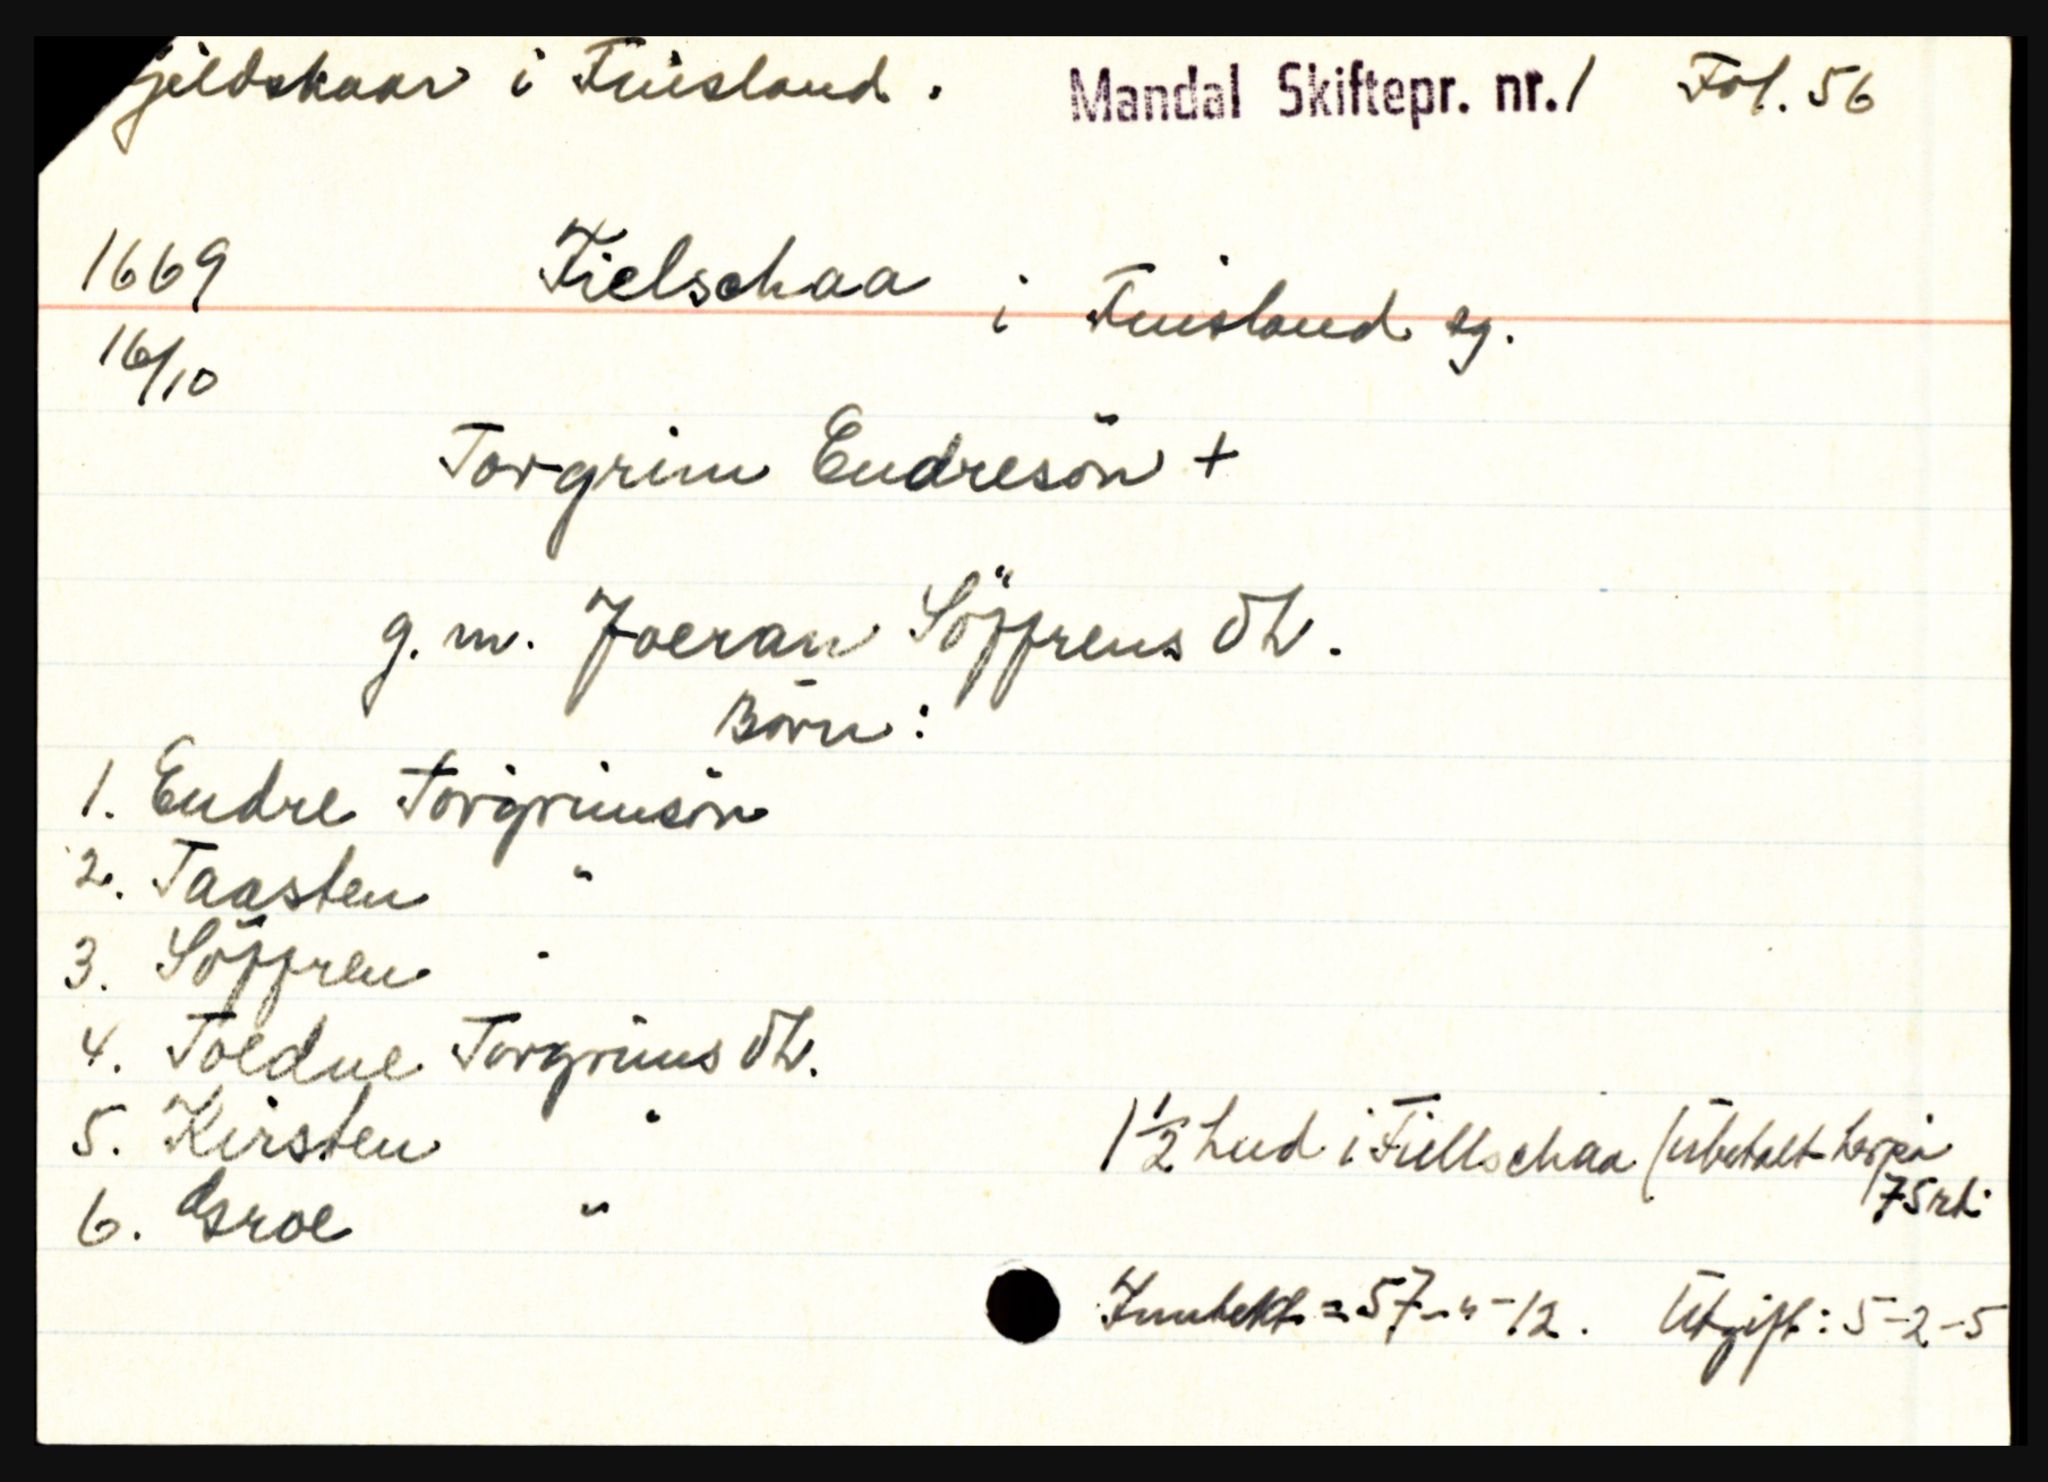 Fjeldskaar i Finsland. Mandal Skiftepr. nr. 1 Fol. 56
1669 Fielschaa i Finsland sg.
16/10
Torgrim Endresön +
g. m. Joeran Söffrens dt.
Börn:
1. Endre Torgrimsön
2. Taasten "
3. Söffren "
4. Toedne Torgrims dt.
5. Kirsten "
6. Gsroe "
1 1/2 hud i Fiellschaa (Ubetalt herpå
75 rd.
Inntekt = 57-"-12. Utgift: 5-2-5